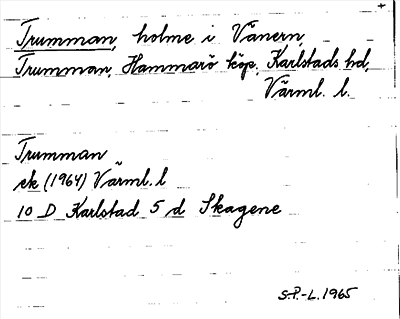 +
Trumman, holme i Vänern,
Trumman, Hammarö köp. Karlstads hd,
Värml. l.
Trumman
ek (1964) Värml. l
10 D Karlstad 5 d Skagene
S.P.-L. 1965